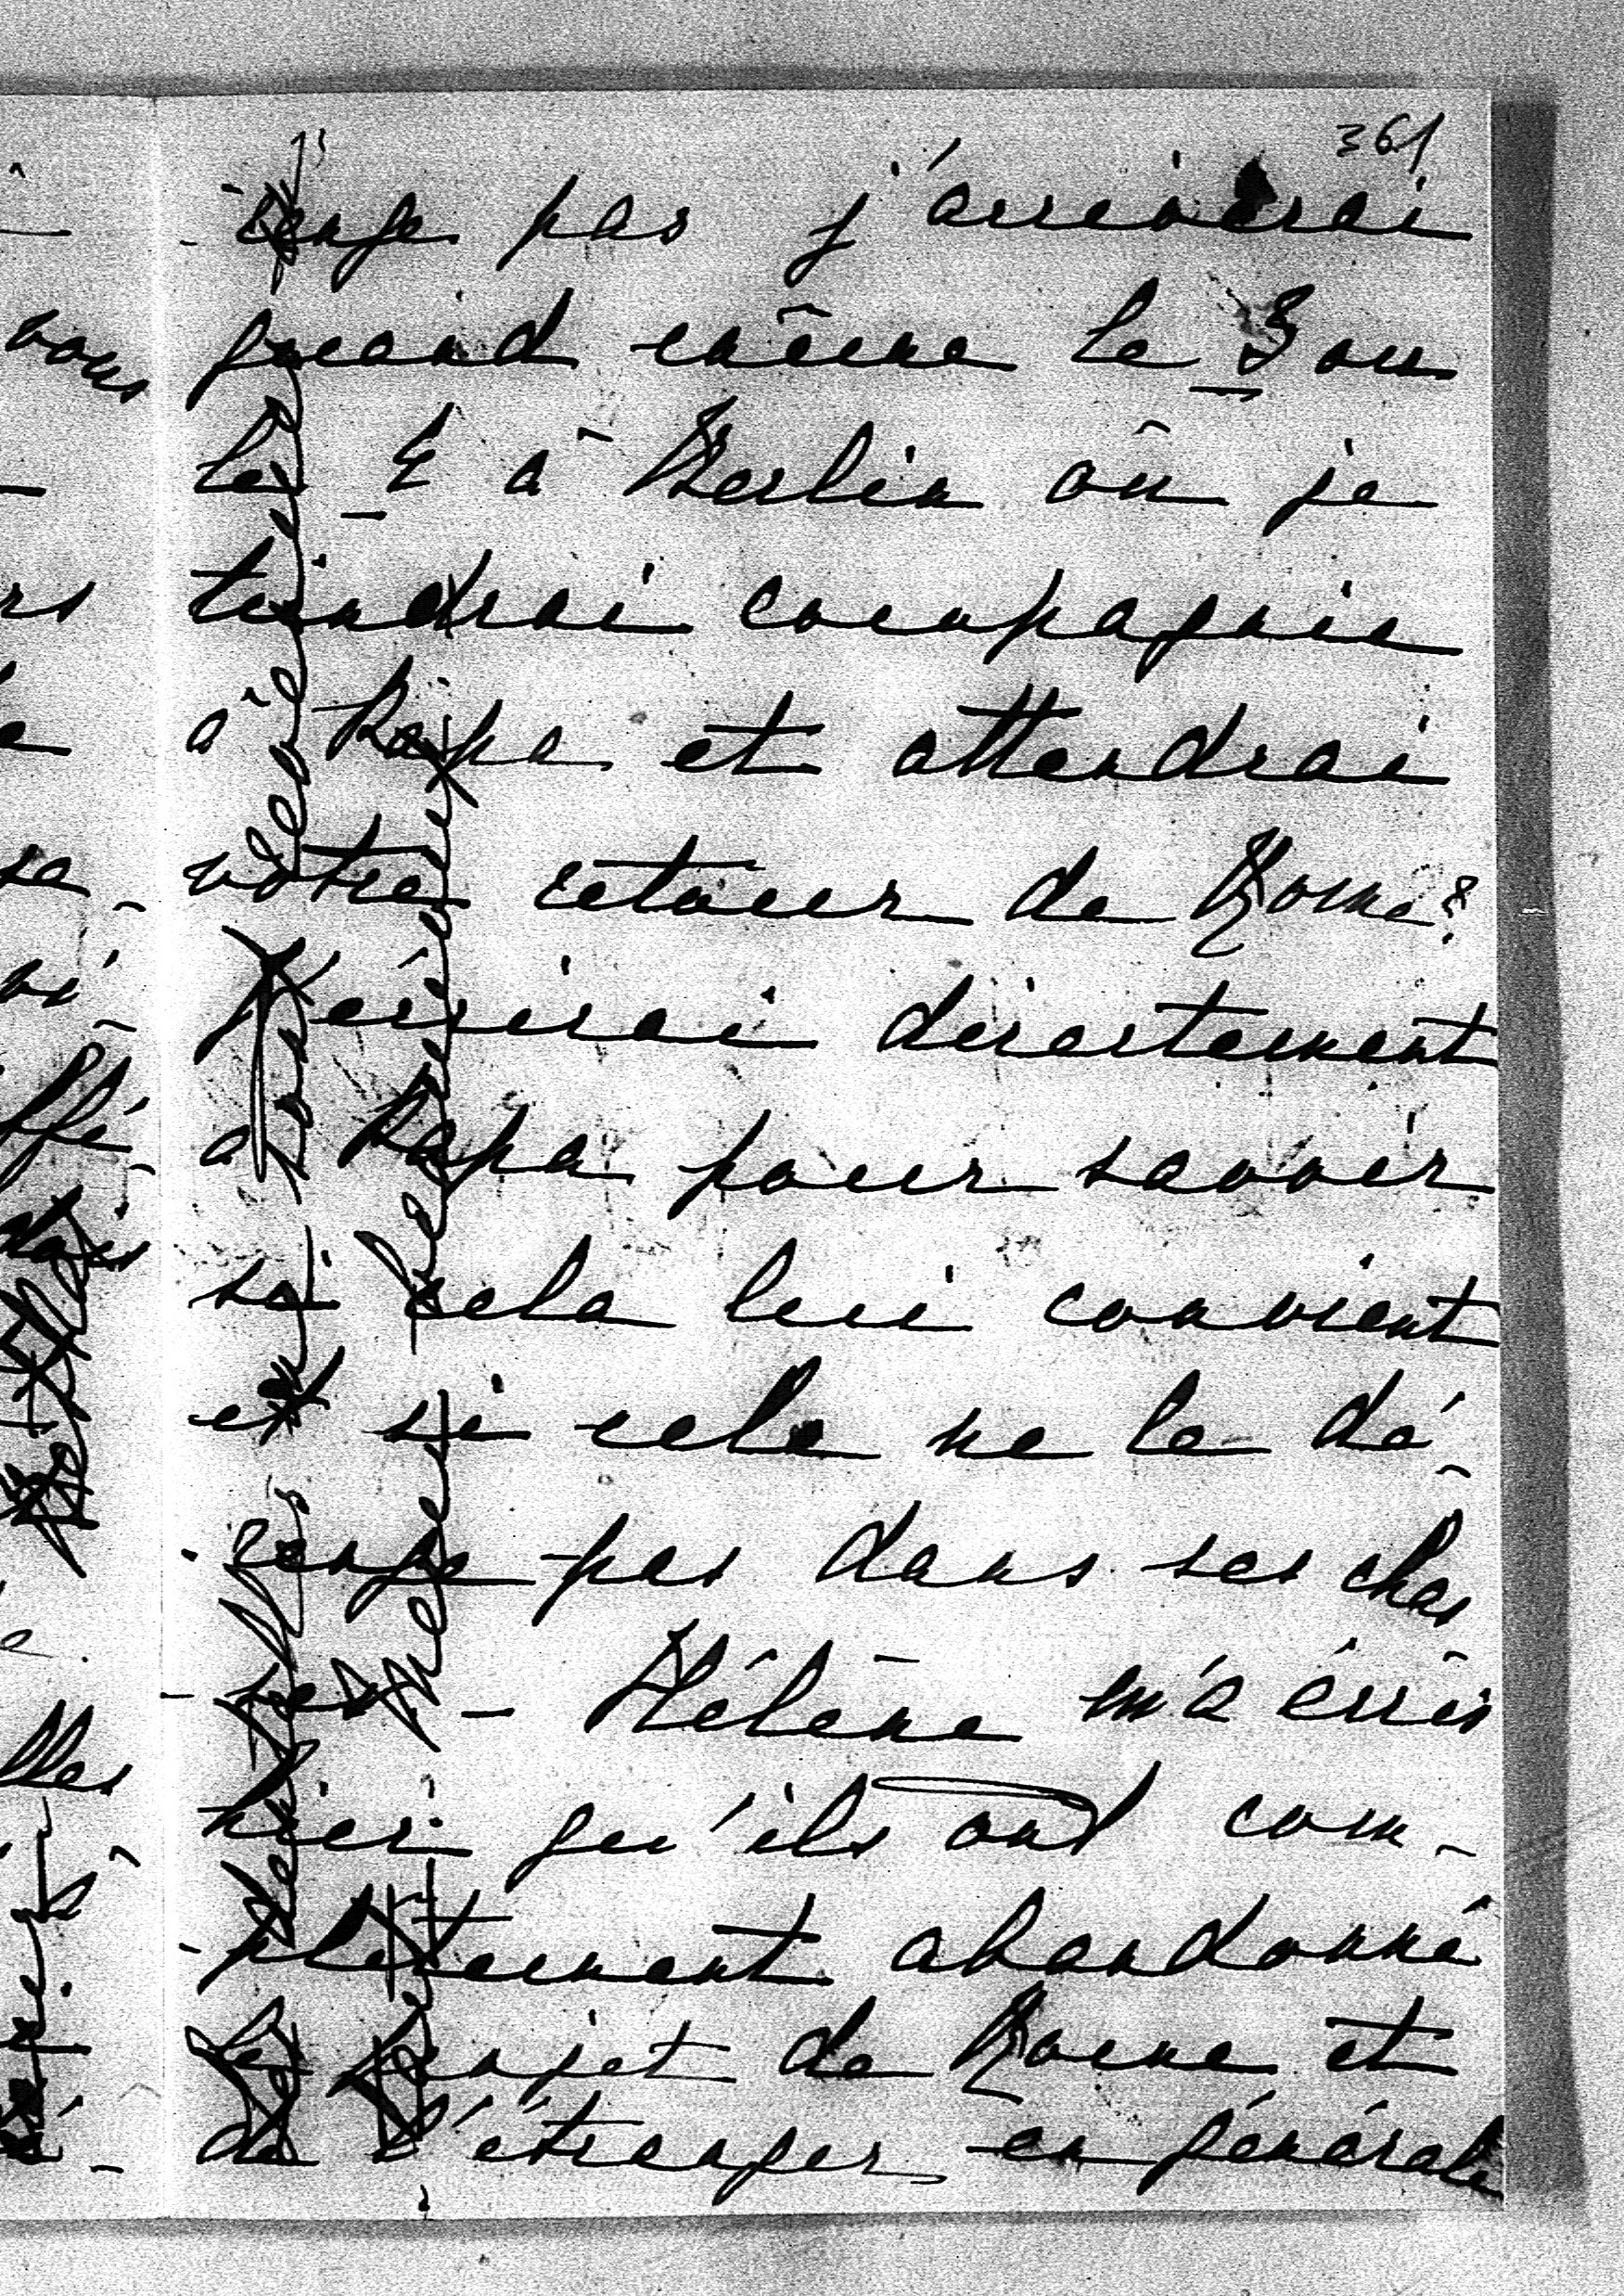 361
-range pas j'arriverai
quand même le 3 ou
le 4 à Berlin où je
tiendrai compagnie
à Papa et attendrai
votre retour de Rome?
J'écrirai directement
à Papa pour savoir
si cela lui convient
et si cela ne le dé
-range pas dans ses cho
-ses. - Hélène m'a écrit
hier qu'ils ont com-
-plètement abandonné
le projet de Rome et
de l'étranger en générale